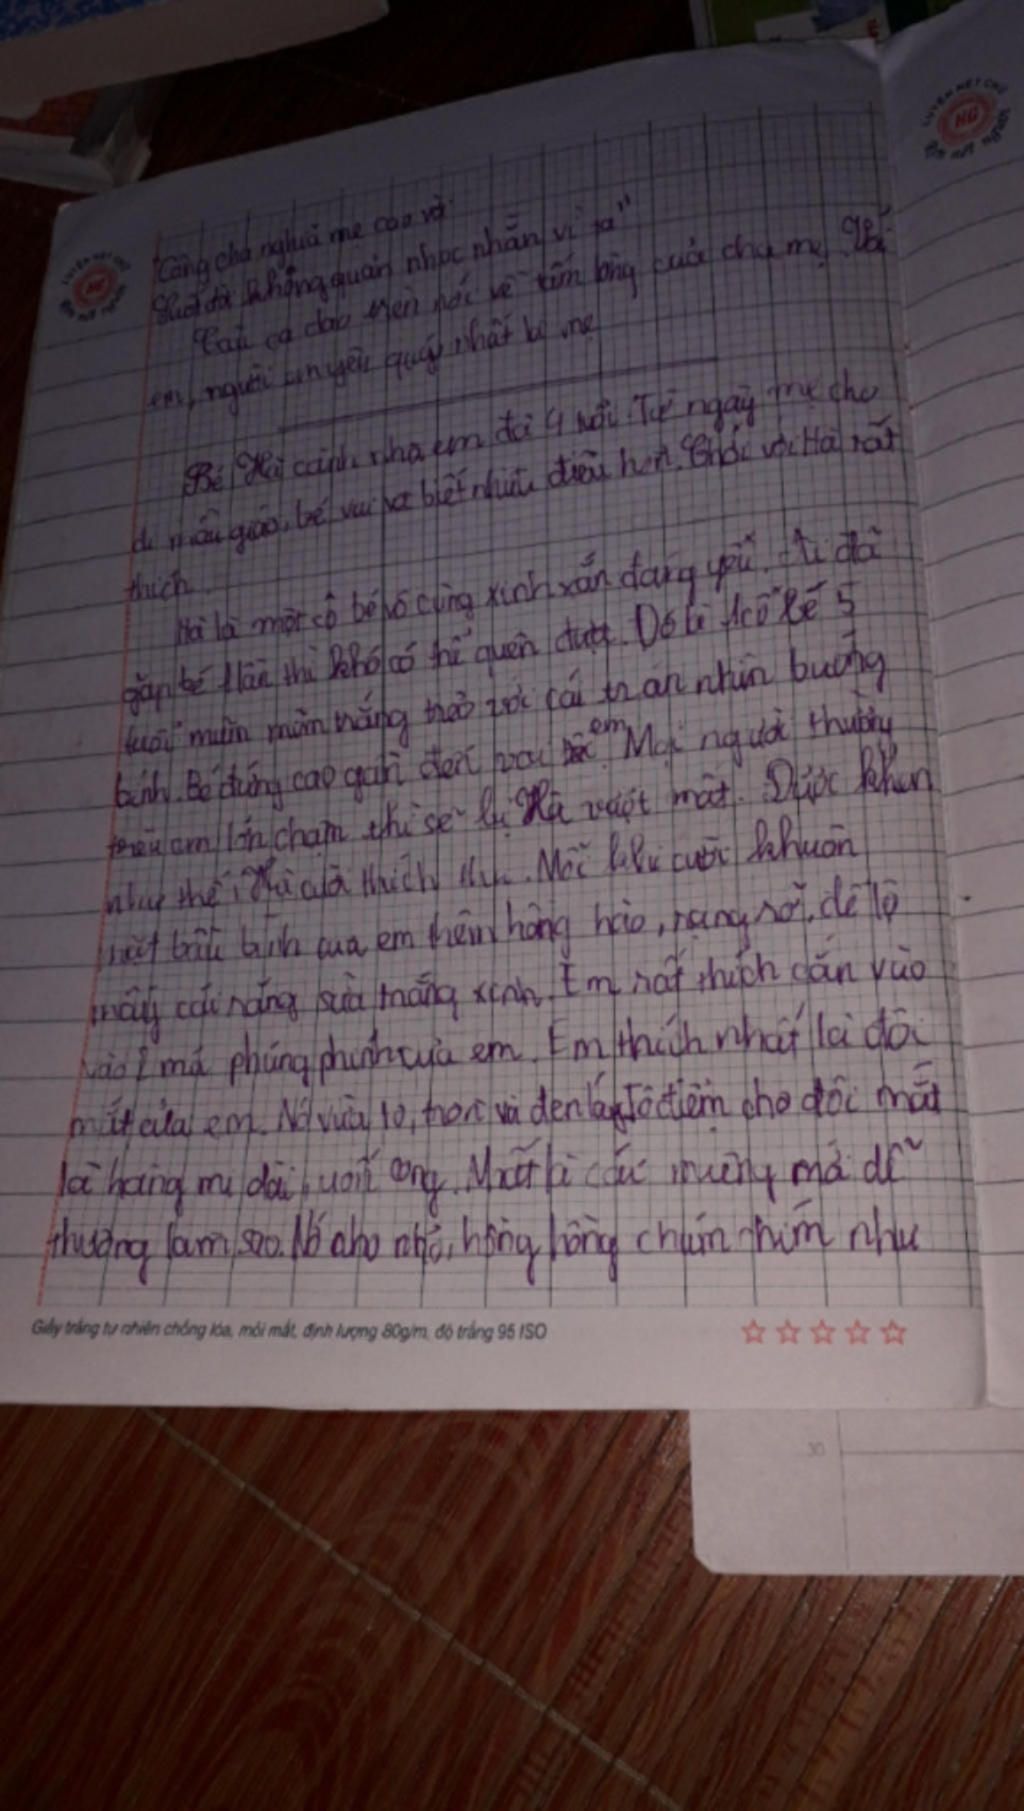 "Công cha nghĩa mẹ cao vời
không quản nhọc nhằn vì ta"
Câu ca dao trên nói về tấm lòng của cha mẹ. Với
em, người em yêu quý nhất là mẹ
Bé Hà cạnh nhà em đã 4 tuổi. Từ ngày mẹ cho
đi mẫu giáo, bé vui và biết nhiều điều hơn. Chơi với Hà rất
thích.
Hà là một cô bé vô cùng xinh xắn đáng yêu. Ai đã
gặp bé 1 lần thì khó có thể quên được. Đó là 1 cô bé 5
tuổi mũm mĩm trắng trẻo với cái trán nhìn bướng
bỉnh. Bé đứng cao gần đến vai em. Mọi người thường
trêu em lớn chậm thì sẽ bị Hà vượt mặt. Được khen
như thế, Hà thích Mỗi khi cười khuôn
mặt bầu bĩnh của em thêm hồng hào, rạng rỡ, để lộ
mấy cái răng sữa trắng xinh. Em rất thích cắn vào
vào 2 má phúng phính của em. Em thích nhất là đôi
mắt của em. Nó vừa to, tròn và đen láy. Tô điểm cho đôi mắt
là hàng mi dài, uốn cong. Nhất là cái miệng mà dễ
thương làm sao. Nó nho nhỏ, hồng hồng chúm chím như
Giấy trắng tự nhiên chống lóa, mỏi mắt, định lượng 80g/m, độ trắng 95 ISO
HG
HG
30